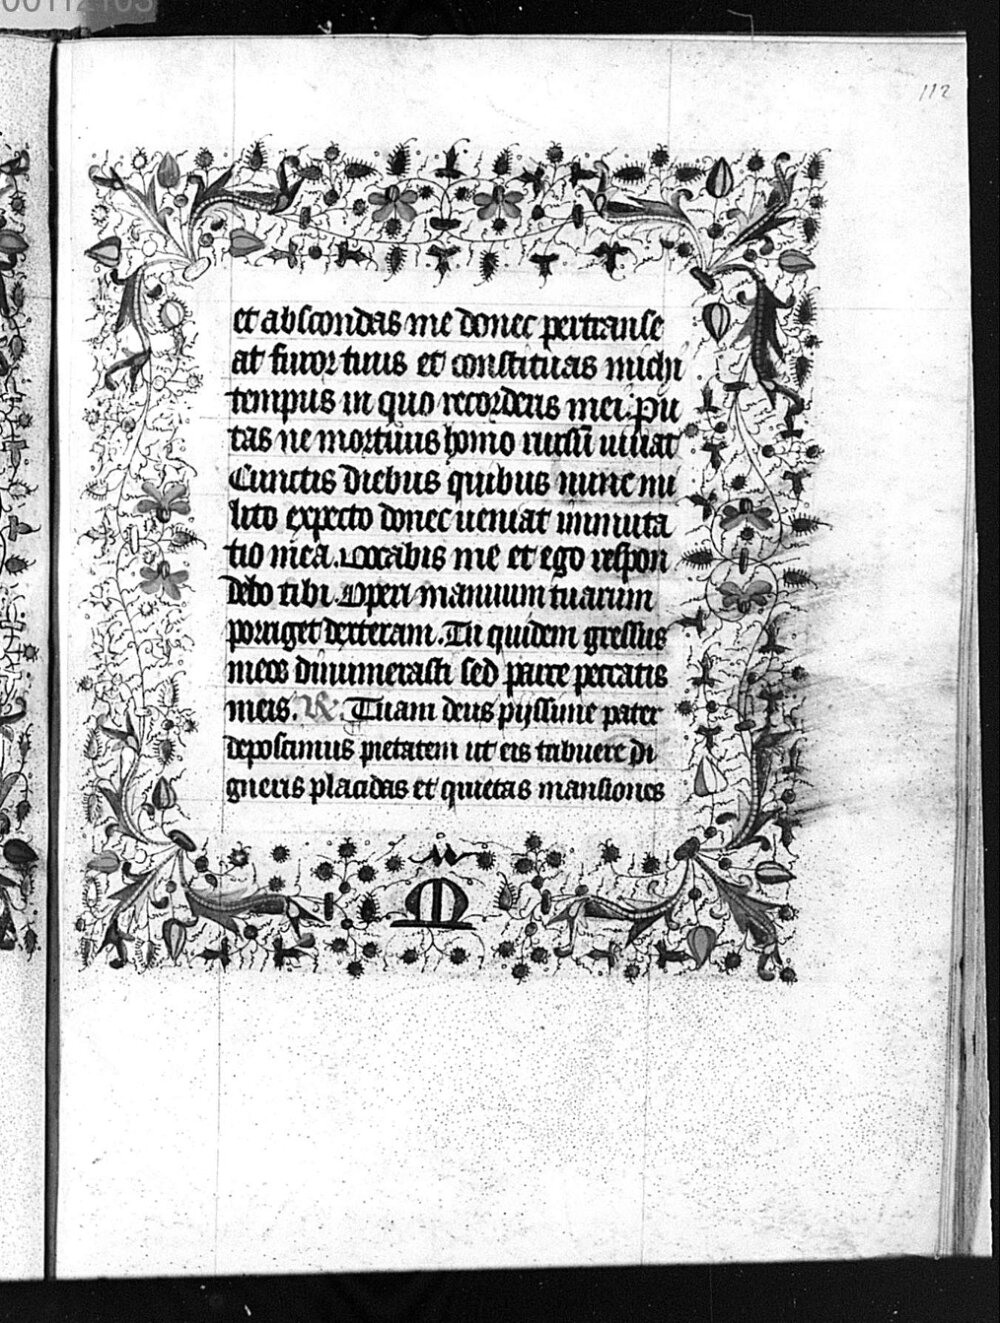 112
et abscondas me donec pertranse
at furor tuus et constituas michi
tempus in quo recorderis mei. Pu
tas ne mortuus homo rursū uiuat
Cunctis diebus quibus nunc mi
lito expecto donec ueniat inmuta
tio mea. Vocabis me et ego respon
debo tibi. Operi manuum tuarum
porriget dexteram. Tu quidem gressus
meos dinumerasti sed parce peccatis
meis. R Tuam deus pijssime pater
deposcimus pietatem ut eis tribuere di
gneris placidas et quietas mansiones
M